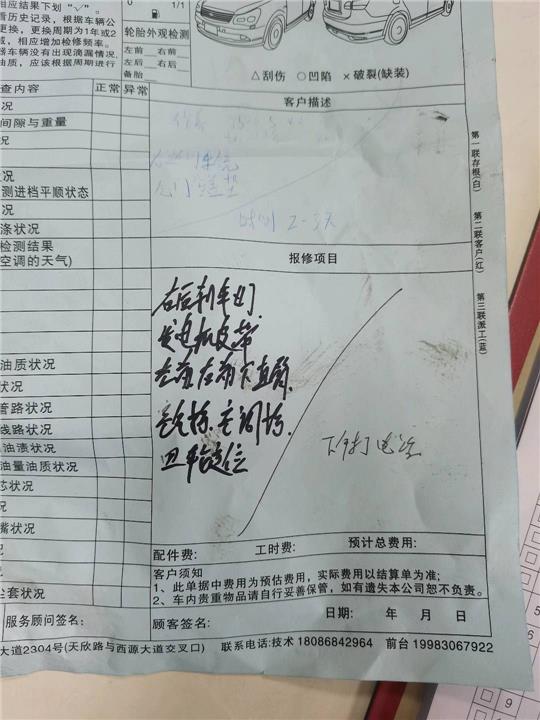 相应结果下划"√"。
看历史记录，根据车辆公
更换，更换周期为1年或2
域，相应增加检修频率。
器车辆没有出现滴漏情况，
油质，应该根据周期进行
查内容 正常 异常
况
间隙与重量
况
况
测进档平顺状态
况
涤状况
检测结果
空调的天气)
油质状况
状况
管路状况
线路状况
油渍状况
油量油质状况
芯状况
况
嘴状况
况
尘套状况
0 1/1
轮胎外观检测
左前 右前
左后 右后
备胎
△刮伤 ○凹陷 ×破裂(缺装)
客户描述
时间2-3天
报修项目
右后刹车灯
发电机皮带
左前右前下直臂
四轮定位
下午打电话
配件费: 工时费: 预计总费用:
客户须知
1、此单据中费用为预估费用，实际费用以结算单为准;
2、车内贵重物品请自行妥善保管，如有遗失本公司恕不负责。
日期: 年 月 日
服务顾问签名: 顾客签名:
大道2304号(天欣路与西源大道交叉口) 联系电话:技术 18086842964 前台 19983067922
第一联存根(白)
第二联客户(红)
第三联派工(蓝)